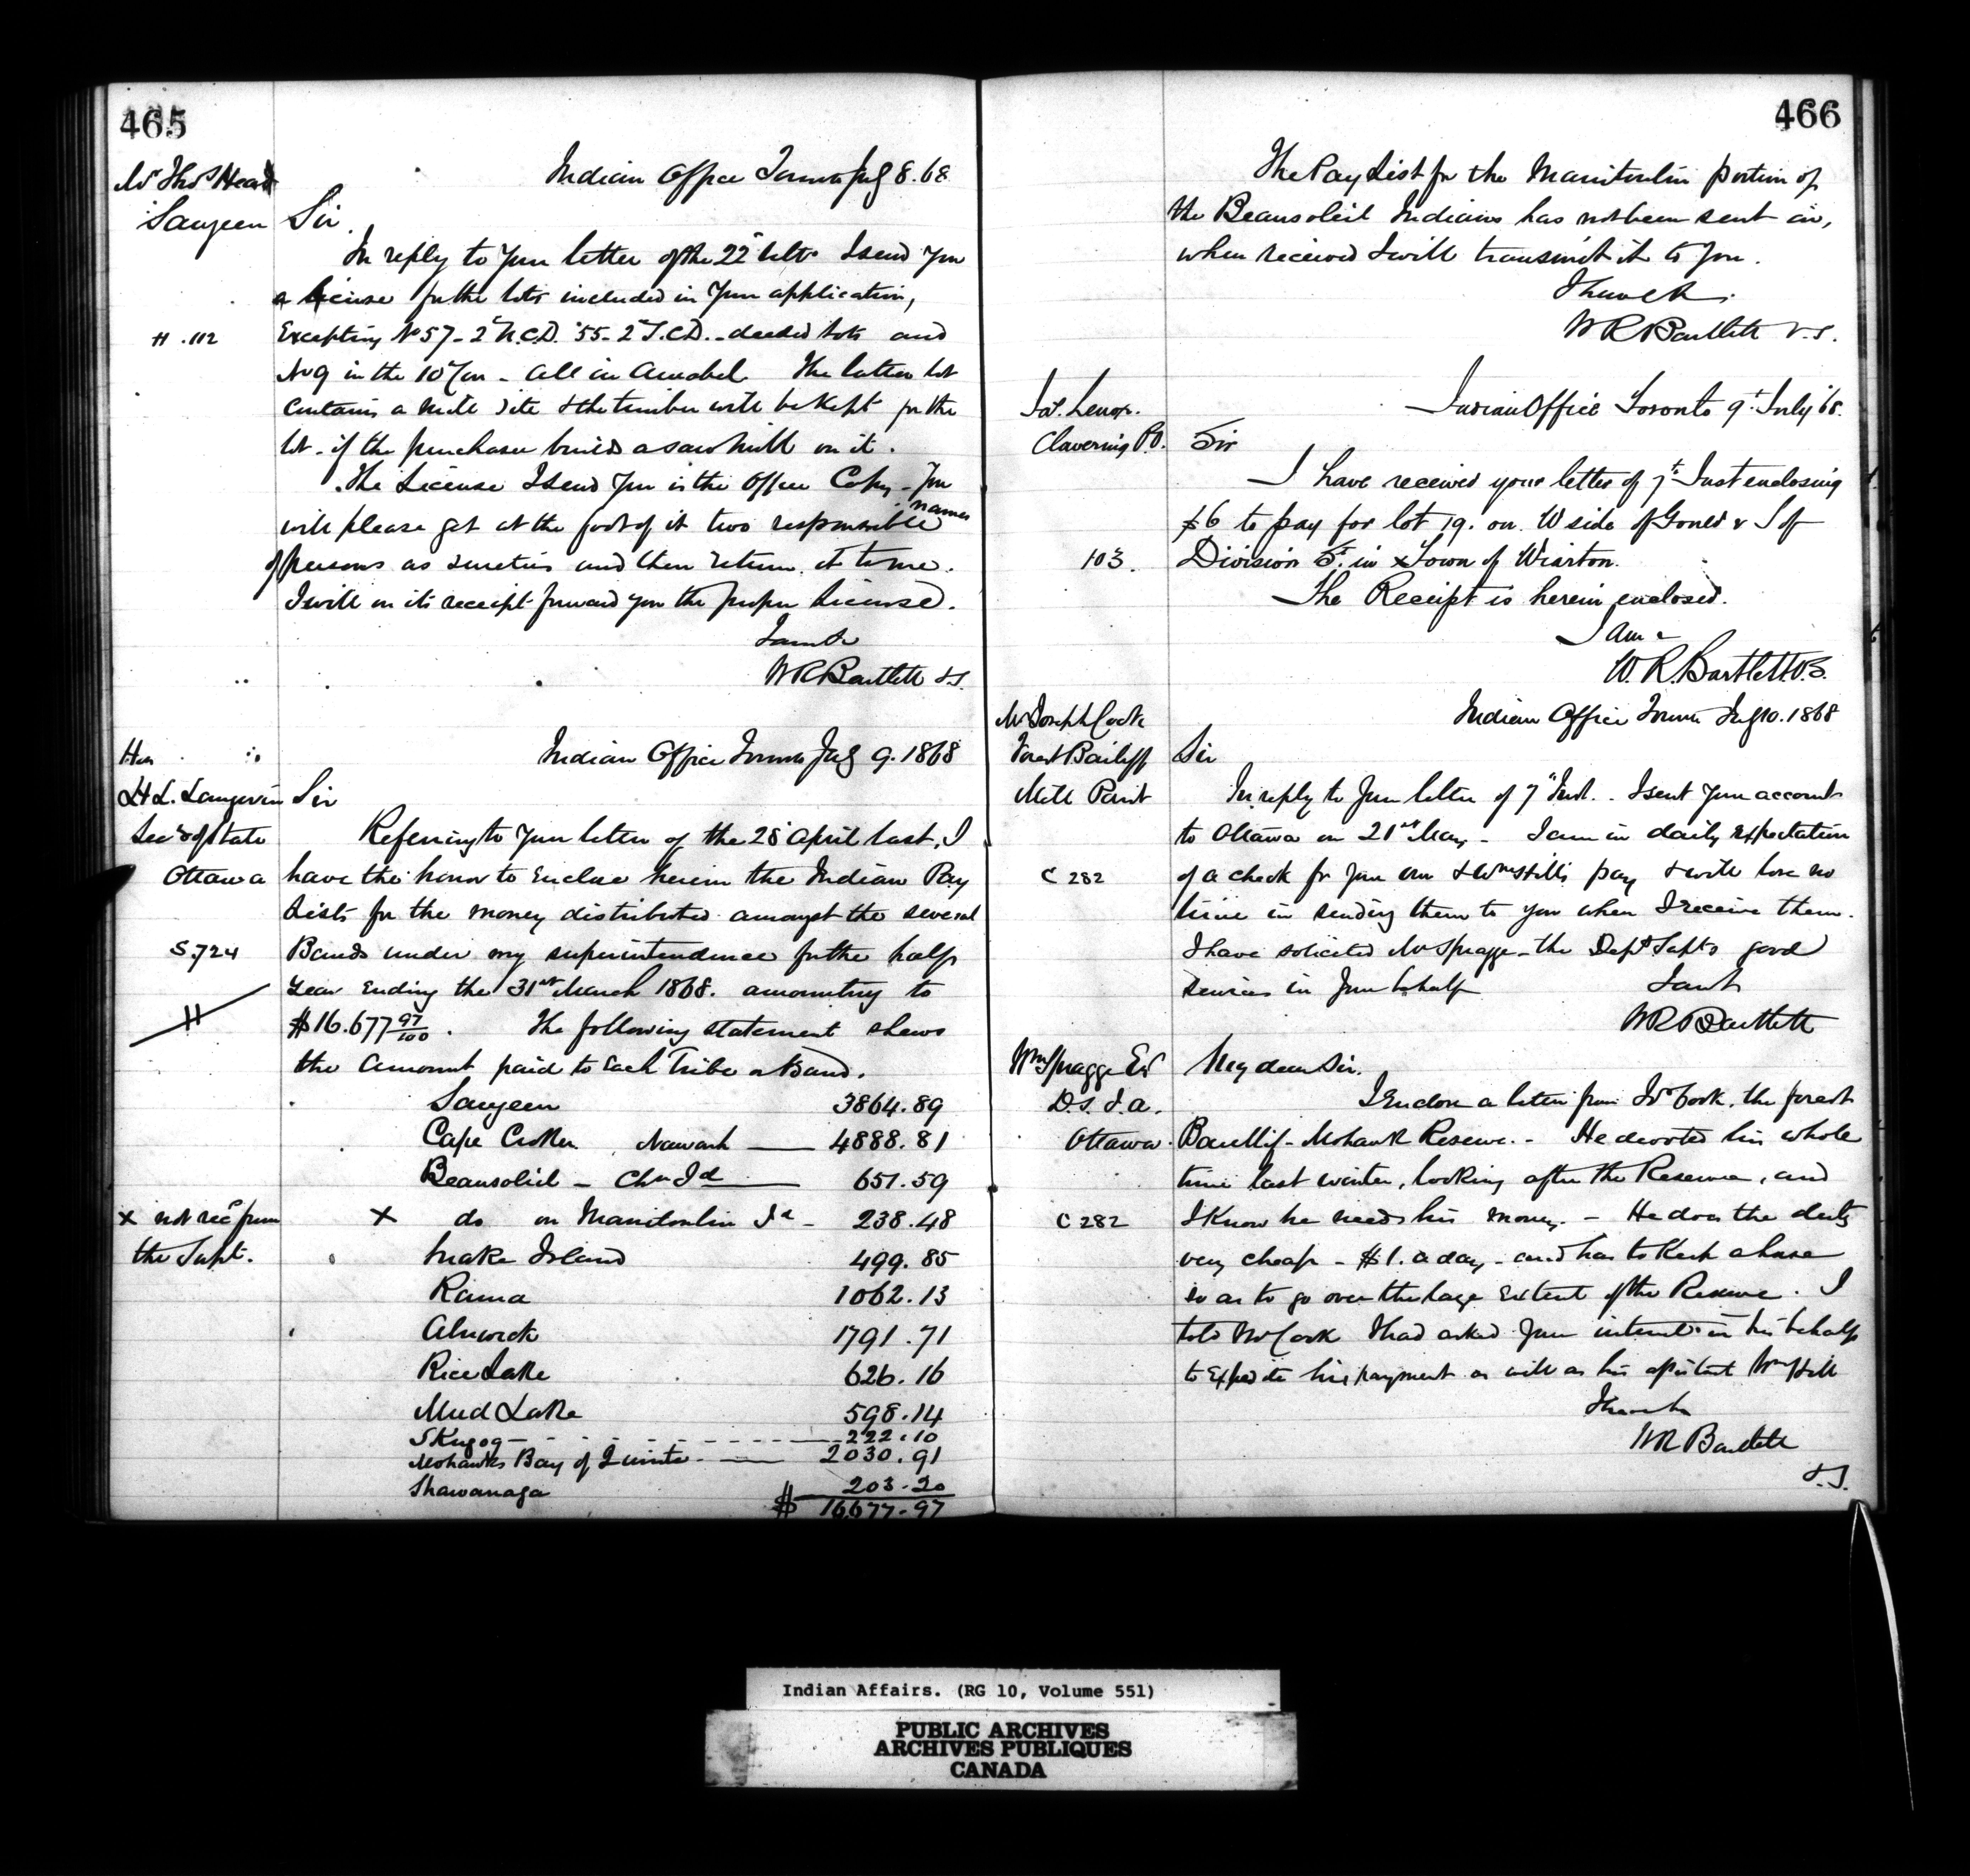 465
Mr Thos Head
Saugeen
Indian Office Toronto July 8. 68
Sir
In reply to your letter of the 22d ulto I send you
a license for the lots included in your application,
H. 112
Excepting No 57 - 2d N.C.D. 55 - 2d S.C.D. - deeded lots and
No 9 in the 10 Con - all in Amabel. The latter lot
contains a mill site & the timber will be kept for the
lot - if the purchaser builds a saw mill on it.
The License I send you is the Office Copy - you
will please get at the foot of it two responsible names
of persons as sureties and then return it to me.
I will on its receipt forward you the proper License.
I am &c
W R Bartlett V.S.
Indian Office Toronto July 9. 1868
Hon
H L. Langevin
Secy of State
Ottawa
Sir
Referring to your letter of the 28 April last, I
have the honor to enclose herein the Indian Pay
Lists for the money distributed amongst the several
S. 724
Bands under my superintendence for the half
year ending the 31st March 1868. amounting to
H
$16.677 97/100. The following statement shews
the amount paid to each Tribe or Band.
Saugeen 3864.89
Cape Croker Nawash 4888.81
Beausoleil - Chn Id 651.59
X not recd from
the Supt.
X do on Manitoulin Id - 238.48
Snake Island 499.85
Rama 1062.13
Alnwick 1791.71
Rice Lake 626.16
Mud Lake 598.14
Skugog 222.10
Mohawks Bay of Quinte 2030.91
Shawanaga 203.20
$ 16677.97
466
The Pay List for the Manitoulin portion of
the Beausoleil Indians has not been sent in,
when received I will transmit it to you.
I have &c.
W R Bartlett V.S.
Jas. Lenox.
Clavering P.O.
Indian Office Toronto 9t July '68.
Sir
I have received your letter of 7t Inst enclosing
$6 to pay for lot 19. on W side of Gould & S of
103.
Division St. in Town of Wiarton.
The Receipt is herein enclosed.
I am &
W. R. Bartlett V.S.
Mr Joseph Cook
Forest Bailiff
Mill Point
Indian Office Toronto July 10. 1868
Sir
In reply to your letter of 7th Inst. I sent your account
to Ottawa on 21st May - I am in daily expectation
C 282
of a check for your own & Wm Hill's pay & will lose no
time in sending them to you when I receive them.
I have solicited Mr Spragge - the Depy Supts good
services in your behalf
I am &
W R Bartlett
Wm Spragge Esq
D.S.I.A.
Ottawa.
My dear Sir.
I enclose a letter from Js Cook, the forest
Bailiff - Mohawk Reserve. - He devoted his whole
time last winter, looking after the Reserve, and
C 282
I know he needs his money. - He does the duty
very cheap - $1. a day - and has to keep a horse
so as to go over the large extent of the Reserve. I
told Mr Cook I had asked your interest in his behalf
to expedite his payment as well as his assistant Wm Hill
I have &
W R Bartlett
V.S.
Indian Affairs. (RG 10, Volume 551)
PUBLIC ARCHIVES
ARCHIVES PUBLIQUES
CANADA